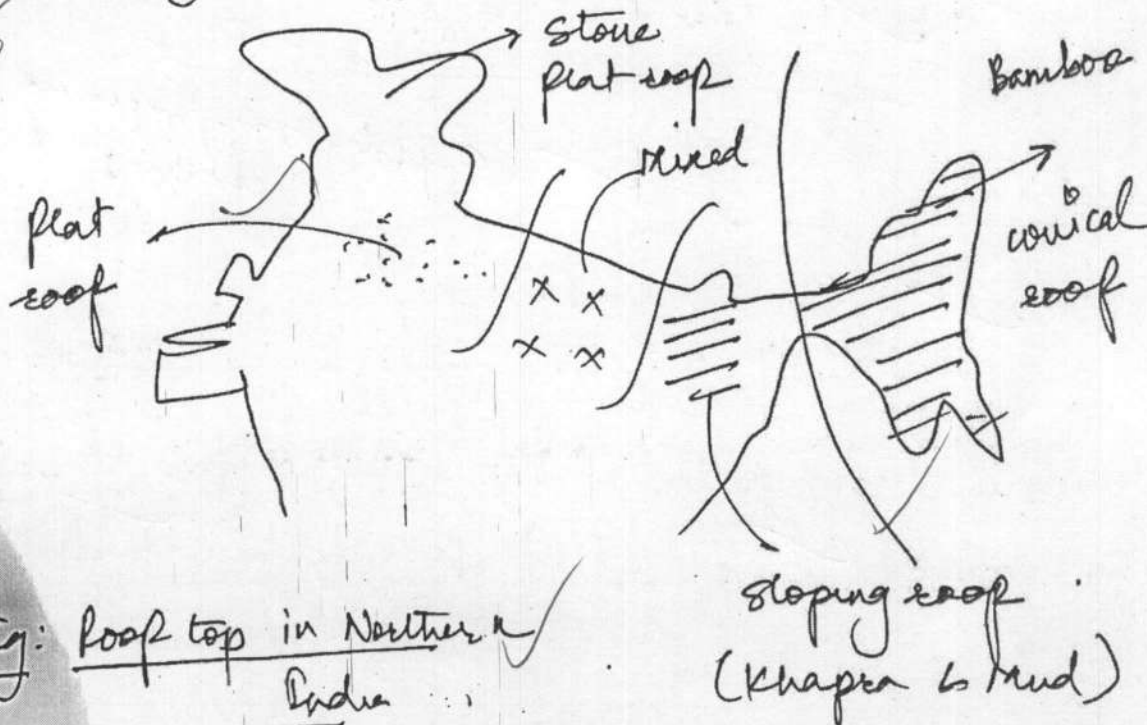 Stone
flat roof
Bamboo
Mixed
flat
roof
conical
roof
sloping roof
(Khapra & Mud)
Fig: Roof top in Northern
India